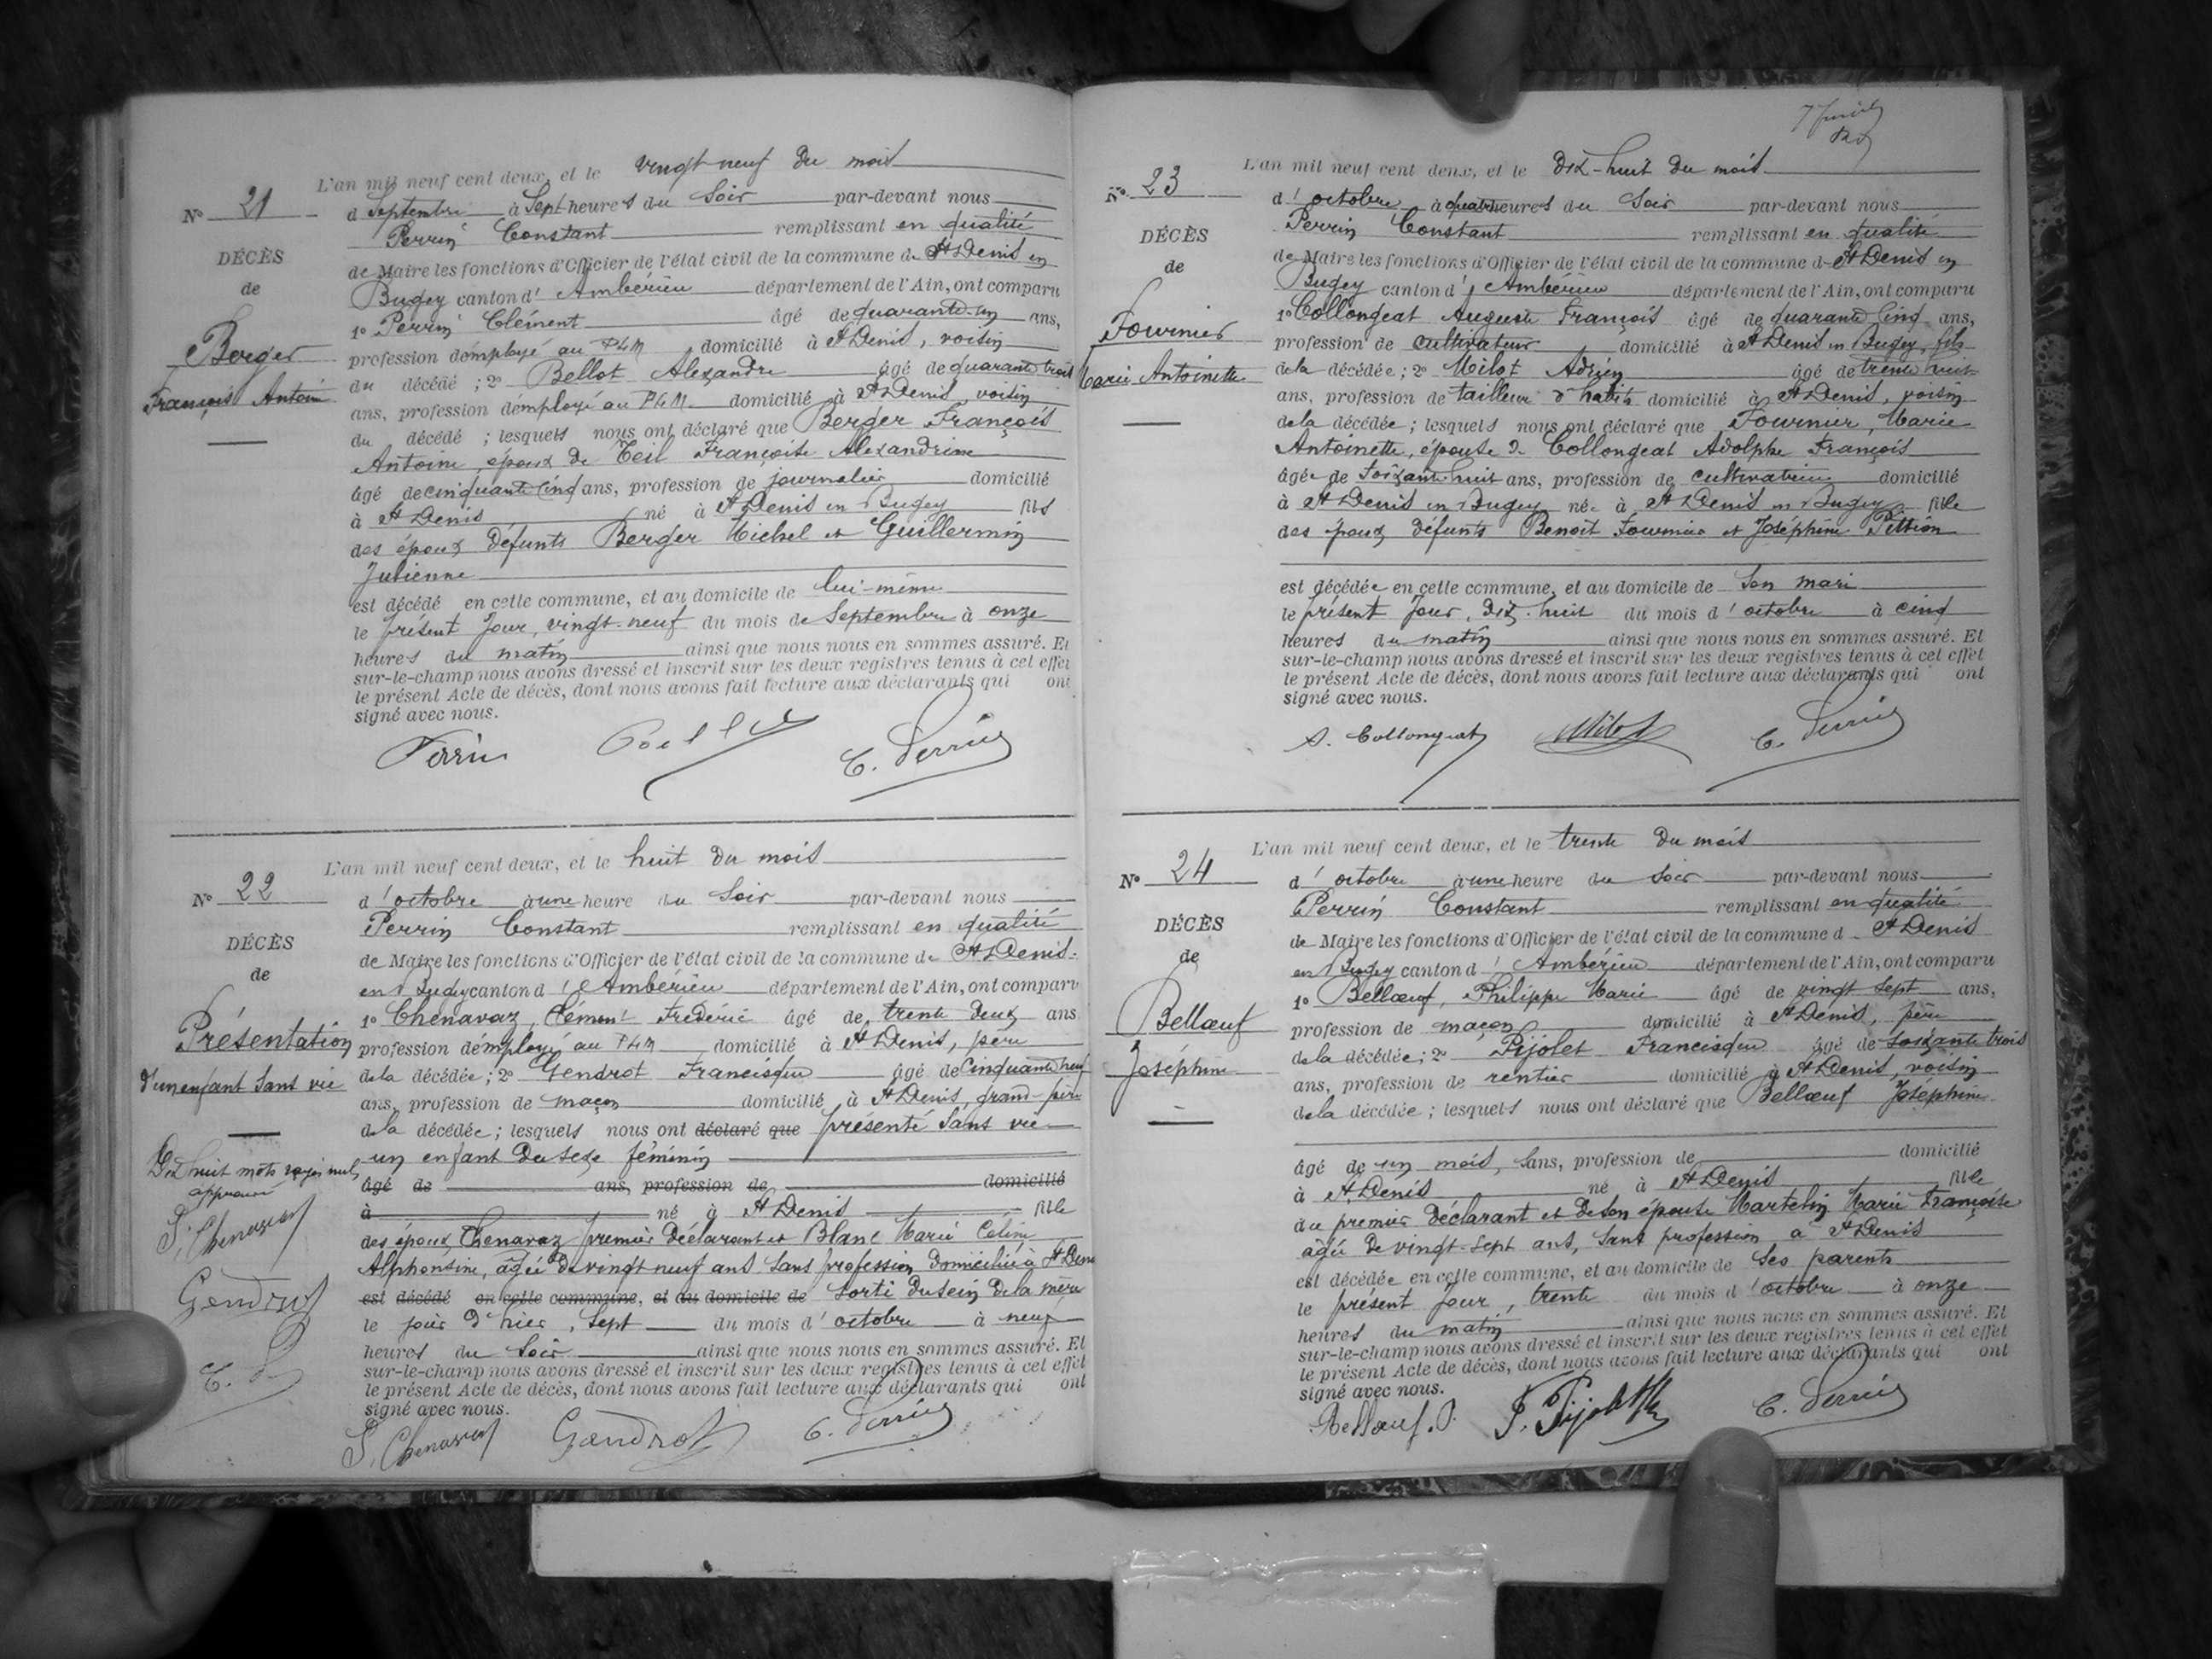 L'an mil neuf cent deux, et le vingt-neuf du mois
N° 21
d Septembre à Sept heures du Soir par-devant nous
Perrin Constant remplissant en qualité
DÉCÈS
de Maire les fonctions d'Officier de l'état civil de la commune de St Denis en
de
Bugey canton d' Ambérieu département de l'Ain, ont comparu
1° Perrin Clément âgé de quarante-un ans,
Berger
profession d'employé au PLM domicilié à St Denis, voisin
du décédé ; 2° Bellot Alexandre âgé de quarante trois
François Antoine
ans, profession d'employé au PLM domicilié à St Denis voisin
du décédé ; lesquels nous ont déclaré que Berger François
Antoine, époux de Teil Françoise Alexandrine
âgé de cinquante cinq ans, profession de journalier domicilié
à St Denis né à St Denis en Bugey fils
des époux défunts Berger Michel et Guillermin
Julienne
est décédé en cette commune, et au domicile de lui-même
le présent jour, vingt-neuf du mois de Septembre à onze
heures du matin ainsi que nous nous en sommes assuré. Et
sur-le-champ nous avons dressé et inscrit sur les deux registres tenus à cet effet
le présent Acte de décès, dont nous avons fait lecture aux déclarants qui ont
signé avec nous.
Perrin C. Perrin
L'an mil neuf cent deux, et le huit du mois
N° 22
d'octobre à une heure du Soir par-devant nous
Perrin Constant remplissant en qualité
DÉCÈS
de Maire les fonctions d'Officier de l'état civil de la commune de St Denis-
de
en Bugey canton d' Ambérieu département de l'Ain, ont comparu
1° Chenavaz, Clément Frédéric âgé de trente deux ans
Présentation
profession d'employé au PLM domicilié à St Denis, père
d'un enfant sans vie
de la décédée ; 2° Gendrot Francisque âgé de Cinquante neuf
ans, profession de maçon domicilié à St Denis, grand-père
de la décédée ; lesquels nous ont déclaré que présenté sans vie
un enfant du sexe féminin
Dix huit mots rayés nuls
approuvé
âgé de ans, profession de domicilié
à né à St Denis fille
S. Chenavaz
des époux Chenavaz premier déclarant et Blanc Marie Céline
Alphonsine, âgée de vingt neuf ans sans profession domiciliée à St Denis
Gendrot
est décédé en cette commune, et au domicile de sorti du sein de la mère
le jour d'hier, sept du mois d'octobre à neuf
heures du soir ainsi que nous nous en sommes assuré. Et
sur-le-champ nous avons dressé et inscrit sur les deux registres tenus à cet effet
le présent Acte de décès, dont nous avons fait lecture aux déclarants qui ont
signé avec nous.
S. Chenavaz Gendrot C. Perrin
L'an mil neuf cent deux, et le dix-huit du mois
N° 23
d'octobre à quatre heures du Soir par-devant nous
Perrin Constant remplissant en qualité
DÉCÈS
de Maire les fonctions d'Officier de l'état civil de la commune d St Denis en
de
Bugey canton d' Ambérieu département de l'Ain, ont comparu
1° Collongeat Auguste François âgé de quarante cinq ans,
Fournier
profession de cultivateur domicilié à St Denis en Bugey, fils
Marie Antoinette
de la décédée ; 2° Milot Adrien âgé de trente huit
ans, profession de tailleur d'habits domicilié à St Denis, voisin
de la décédée ; lesquels nous ont déclaré que Fournier, Marie
Antoinette, épouse de Collongeat Adolphe François
âgée de soixante huit ans, profession de cultivatrice domicilié
à St Denis en Bugey née à St Denis en Bugey fille
des époux défunts Benoît Fournier et Joséphine Pittion
est décédée en cette commune, et au domicile de son mari
le présent jour, dix-huit du mois d'octobre à cinq
heures du matin ainsi que nous nous en sommes assuré. Et
sur-le-champ nous avons dressé et inscrit sur les deux registres tenus à cet effet
le présent Acte de décès, dont nous avons fait lecture aux déclarants qui ont
signé avec nous.
A. Collongeat Milot C. Perrin
L'an mil neuf cent deux, et le trente du mois
N° 24
d'octobre à une heure du soir par-devant nous
Perrin Constant remplissant en qualité
DÉCÈS
de Maire les fonctions d'Officier de l'état civil de la commune d St Denis
de
en Bugey canton d' Ambérieu département de l'Ain, ont comparu
1° Bellœuf, Philippe Marie âgé de vingt sept ans,
Bellœuf
profession de maçon domicilié à St Denis, père
Joséphine
de la décédée ; 2° Pijolet Francisque âgé de soixante trois
ans, profession de rentier domicilié à St Denis, voisin
de la décédée ; lesquels nous ont déclaré que Bellœuf Joséphine
âgé de un mois, sans, profession de domicilié
à St Denis né à St Denis fille
du premier déclarant et de son épouse Martelin Marie Françoise
âgée de vingt-sept ans, sans profession à St Denis
est décédée en cette commune, et au domicile de ses parents
le présent jour, trente du mois d'octobre à onze
heures du matin ainsi que nous nous en sommes assuré. Et
sur-le-champ nous avons dressé et inscrit sur les deux registres tenus à cet effet
le présent Acte de décès, dont nous avons fait lecture aux déclarants qui ont
signé avec nous.
Bellœuf. P. F. Pijolet C. Perrin